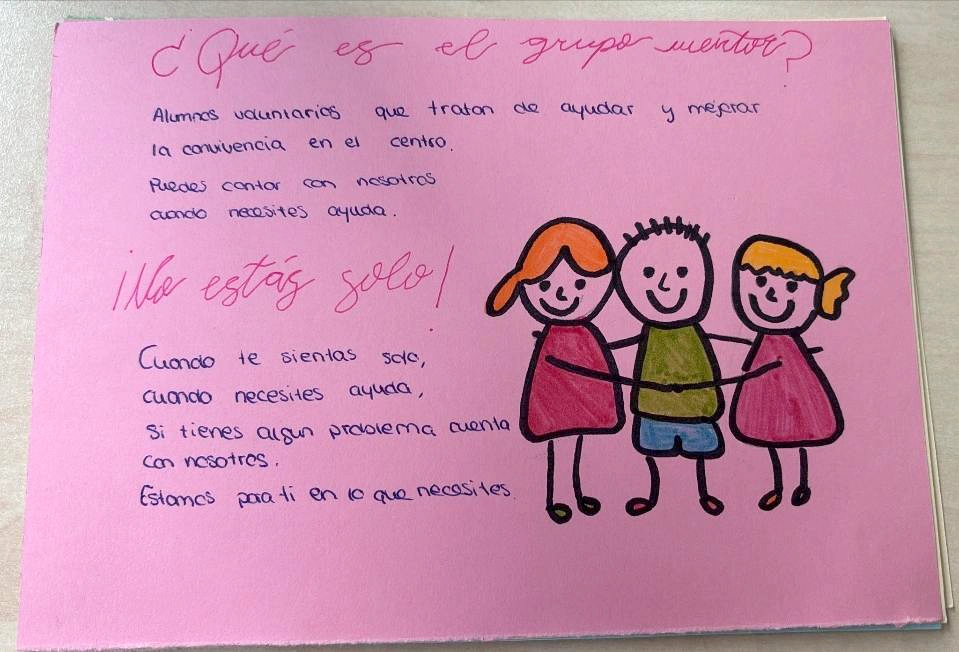 ¿Qué es el grupo mentor?
Alumnos voluntarios que tratan de ayudar y mejorar
la convivencia en el centro.
Puedes contar con nosotros
cuando necesites ayuda.
¡No estás solo!
Cuando te sientas solo,
cuando necesites ayuda,
si tienes algun problema cuenta
con nosotros.
Estamos para ti en lo que necesites